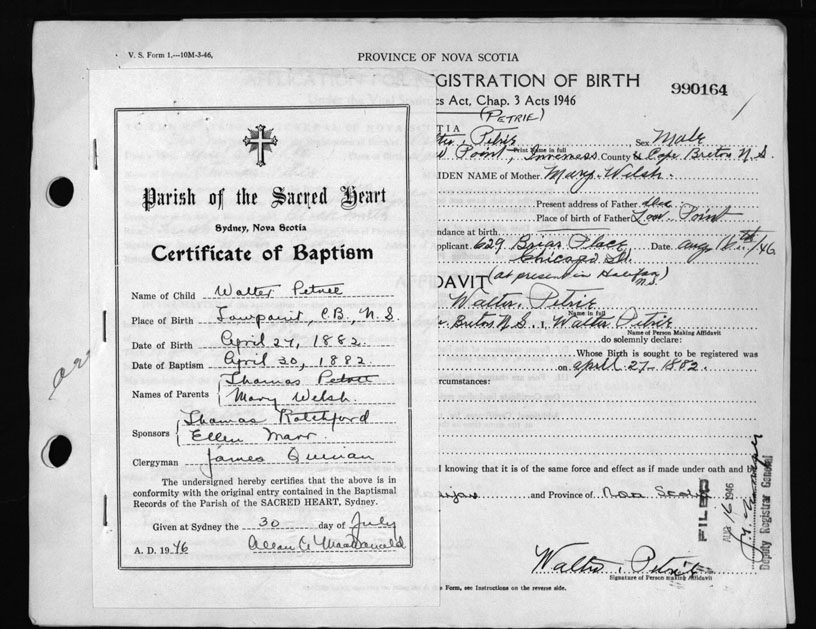 V. S. Form 1.—10M-3-46,
PROVINCE OF NOVA SCOTIA
GISTRATION OF BIRTH
990164
cs Act, Chap. 3 Acts 1946
(PETRIE)
Petrie Sex Male
Print Name in full
Point, Inverness County Cape Breton N. S.
IDEN NAME of Mother Mary Welsh
Present address of Father
Place of birth of Father Low Point
ndance at birth
pplicant 629 Briar Place Date Aug 16th/46
Chicago Ill
(at present in Halifax N.S.)
DAVIT
Walter Petrie
Name in full
Breton N.S. I, Walter Petrie
Name of Person Making Affidavit
do solemnly declare:
Whose Birth is sought to be registered was
on April 27 1882.
rcumstances:
d knowing that it is of the same force and effect as if made under oath and
and Province of Nova Scotia
FILED
AUG 16 1946
Deputy Registrar General
Walter Petrie
Signature of Person making Affidavit
Form, see Instructions on the reverse side.
Parish of the Sacred Heart
Sydney, Nova Scotia
Certificate of Baptism
Name of Child Walter Petrie
Place of Birth Lowpoint, C.B., N.S.
Date of Birth April 27, 1882.
Date of Baptism April 30, 1882.
Names of Parents Thomas
Mary Welsh
Sponsors Thomas Rotchford
Ellen Marr.
Clergyman James Quinan
The undersigned hereby certifies that the above is in
conformity with the original entry contained in the Baptismal
Records of the Parish of the SACRED HEART, Sydney.
Given at Sydney the 30 day of July
A. D. 1946